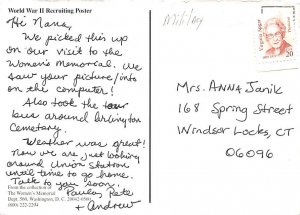 World War II Recruiting Poster
Hi Nana,
We picked this up
on our visit to the
Women's Memorial. We
saw your picture/info
on the computer!
Also took the tour
bus around Arlington
Cemetary.
Weather was great!
Now we are just looking
around Union Station
until time to go home.
Talk to you soon,
Paula, Pete
+ Andrew
From the collection of
The Women's Memorial
Dept. 560, Washington, D.C. 20042-0560
(800) 222-2294
Military
Virginia Apgar
Physician
20
Mrs. ANNA Janik
168 Spring Street
Windsor Locks, CT
06096